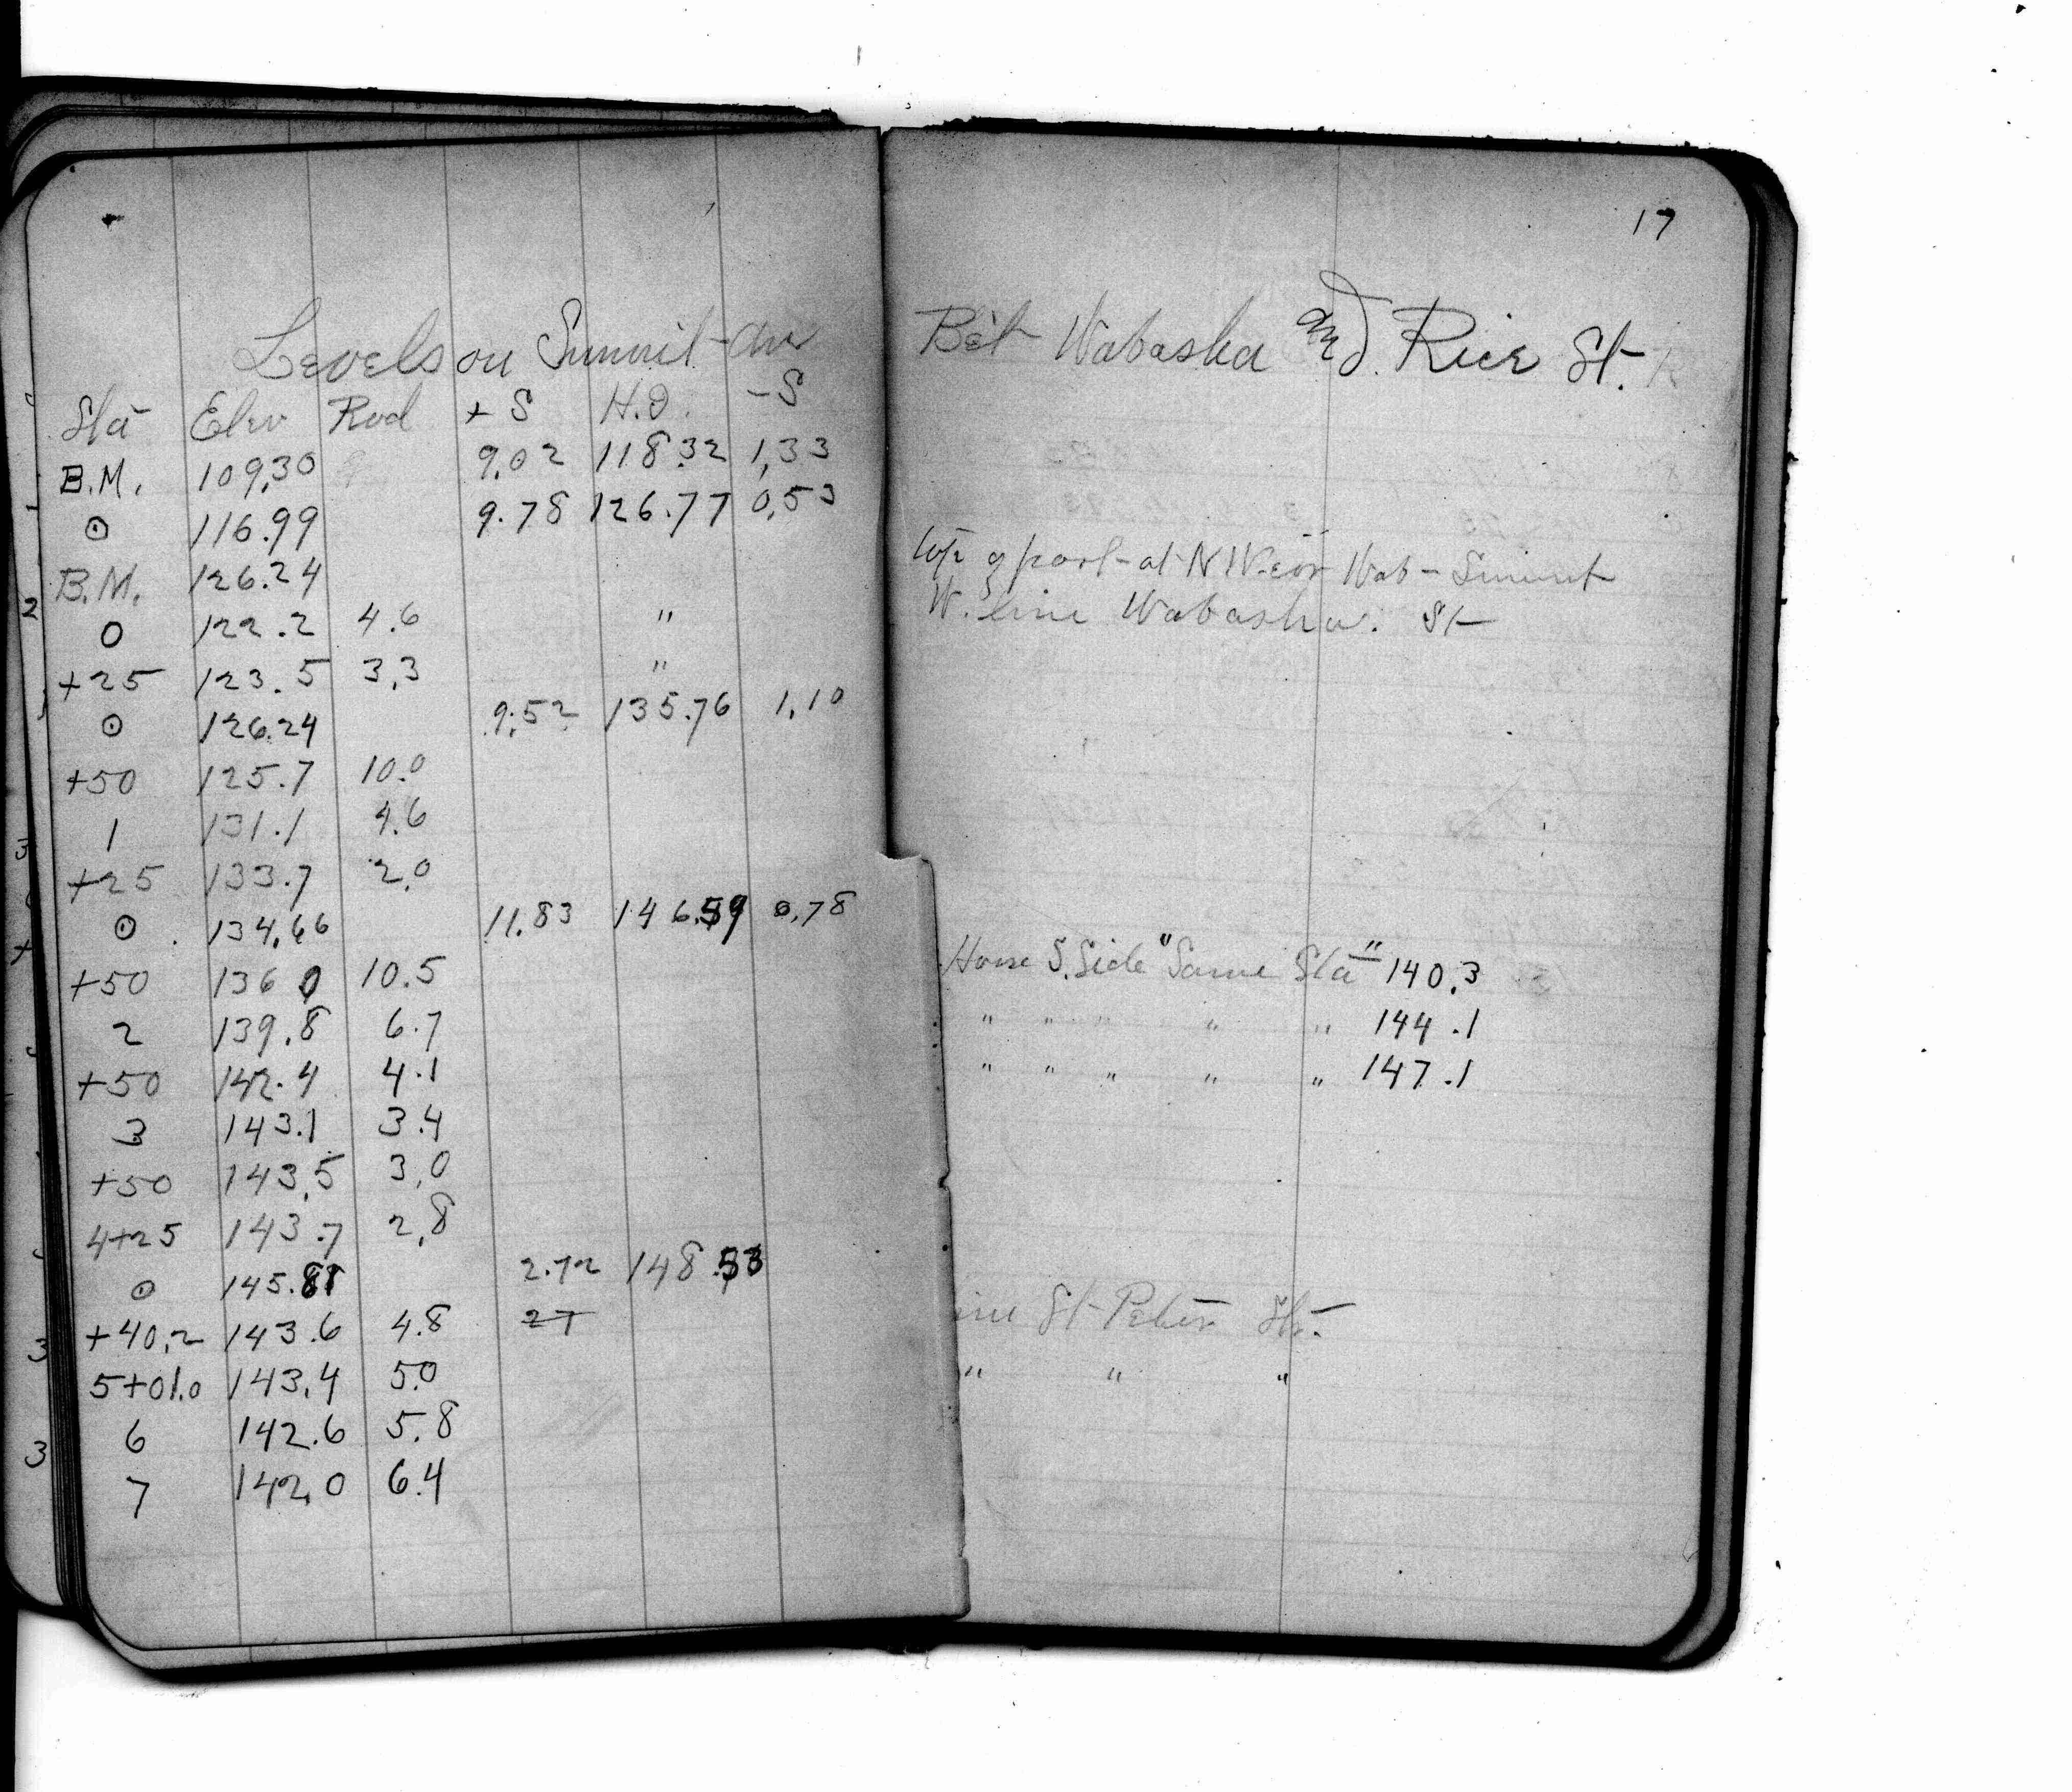 17
Levels on Summit ave Bet Wabasha and Rice St.
Sta Elev Rod + S H.O. - S
B.M. 109.30 9.02 118.32 1.33
⊙ 116.99 9.78 126.77 0.53
B.M. 126.24 top of post at N W cor Wab - Summit
0 122.2 4.6 " W. line Wabasha. St
+25 123.5 3.3 "
⊙ 126.24 9.52 135.76 1.10
+50 125.7 10.0
1 131.1 4.6
+25 133.7 2.0
⊙ 134.66 11.83 146.59 0.78
+50 136 0 10.5 House S. Side "Same Sta" 140.3
2 139.8 6.7 " " " " " 144.1
+50 142.4 4.1 " " " " " 147.1
3 143.1 3.4
+50 143.5 3.0
4+25 143.7 2.8
⊙ 145.81 2.72 148.53
+40.2 143.6 4.8 27 ine St Peter Str.
5+01.0 143.4 5.0 " " "
6 142.6 5.8
7 142.0 6.4